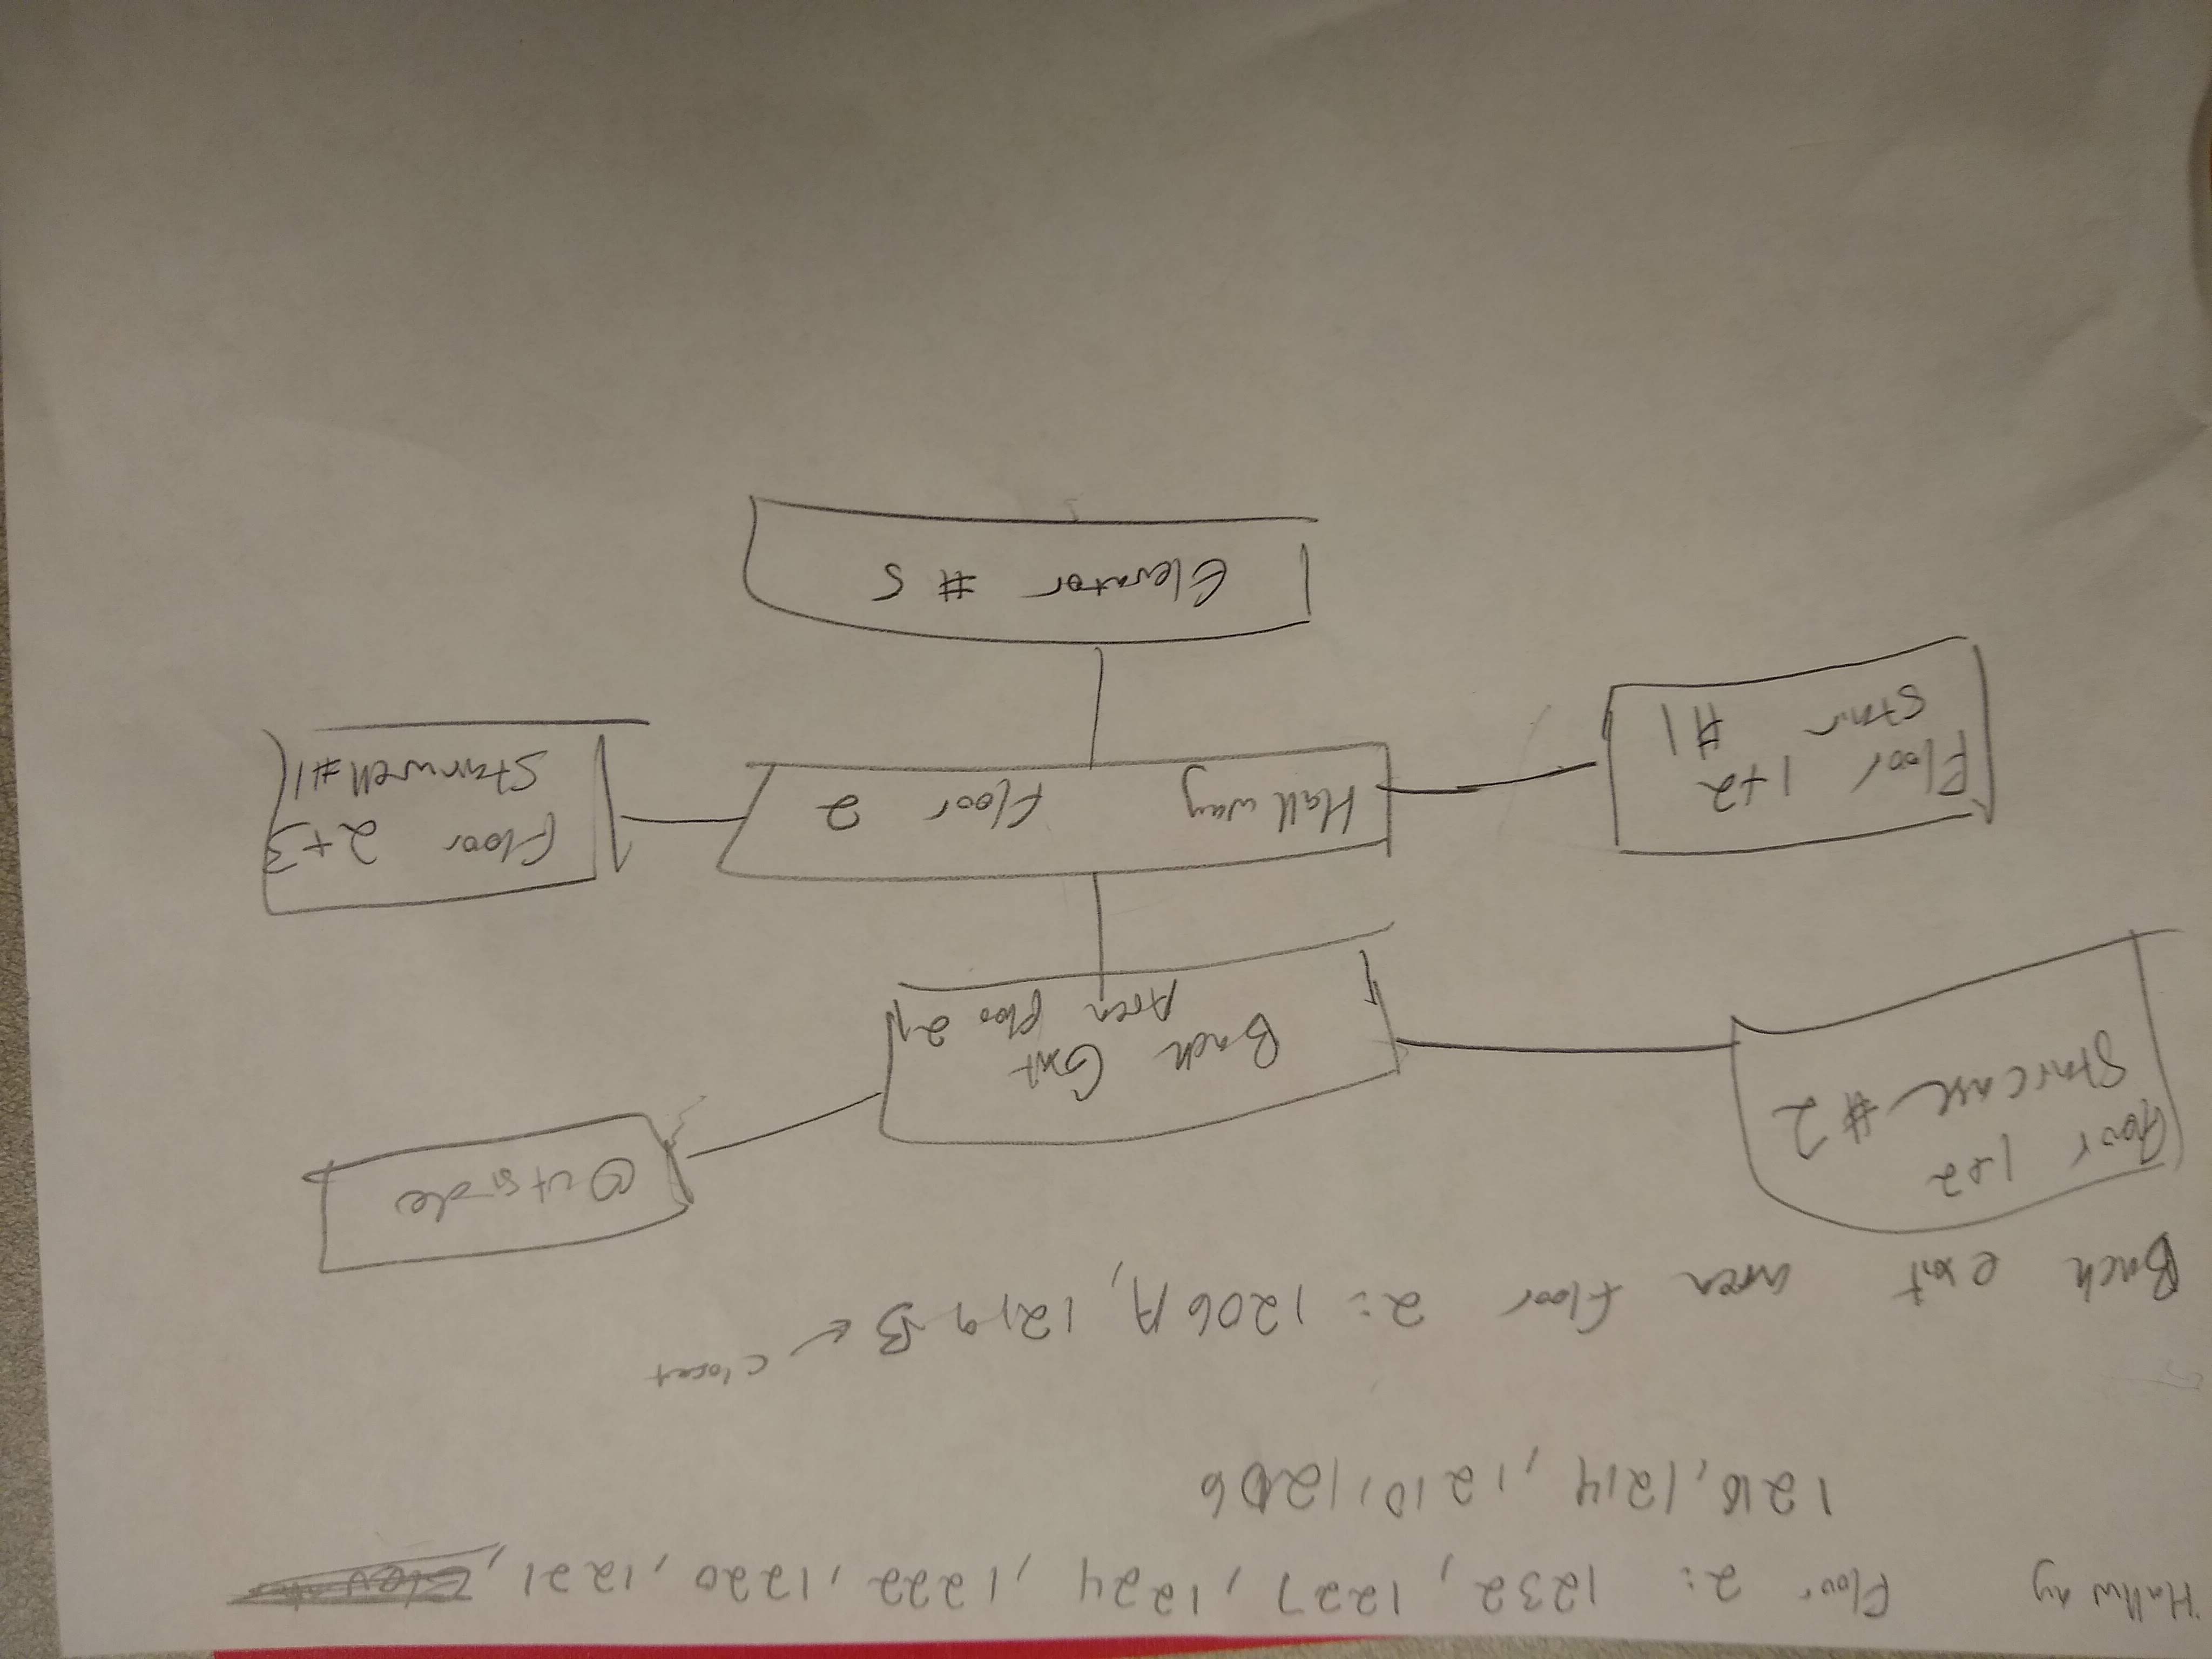 Hallway Floor 2: 1232, 1227, 1224, 1222, 1220, 1221,
1216, 1214, 1210, 1206
closet
Back exit area floor 2: 1206 A, 1219 B
Outside
Floor 1+2
Starcase #2
Back Exit
Area Floo 2
Floor 2+3
Stairwell #1
Hallway Floor 2
Floor 1+2
Stair #1
Elevator # 5